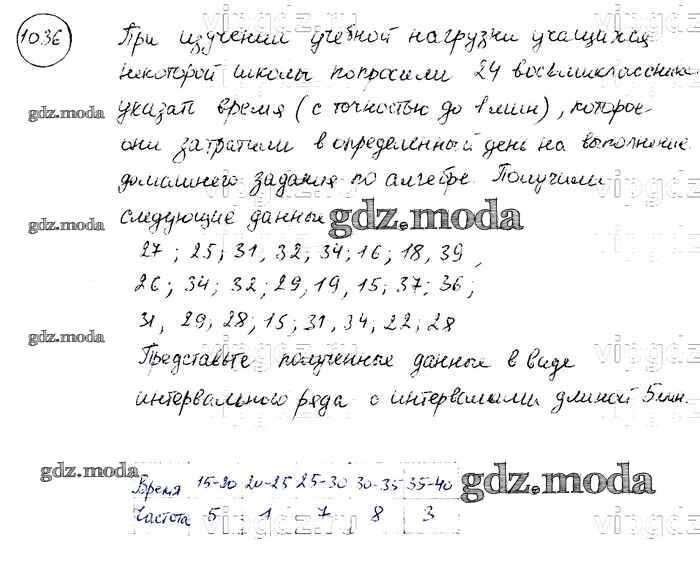 1036
При изучении учебной нагрузки учащихся
некоторой школы попросили 24 восьмиклассника
указать время (с точностью до 1 мин), которое
gdz.moda
они затратили в определенный день на выполнение
домашнего задания по алгебре. Получили
следующие данные
gdz.moda
gdz.moda
27; 25; 31, 32; 34; 16; 18, 39,
26; 34; 32; 29, 19, 15; 37; 36;
31, 29; 28; 15; 31, 34; 22; 28
gdz.moda
Представьте полученные данные в виде
интервального ряда с интервалами длиной 5 мин.
gdz.moda
gdz.moda
Время 15-20 20-25 25-30 30-35 35-40
Частота 5 1 7 8 3